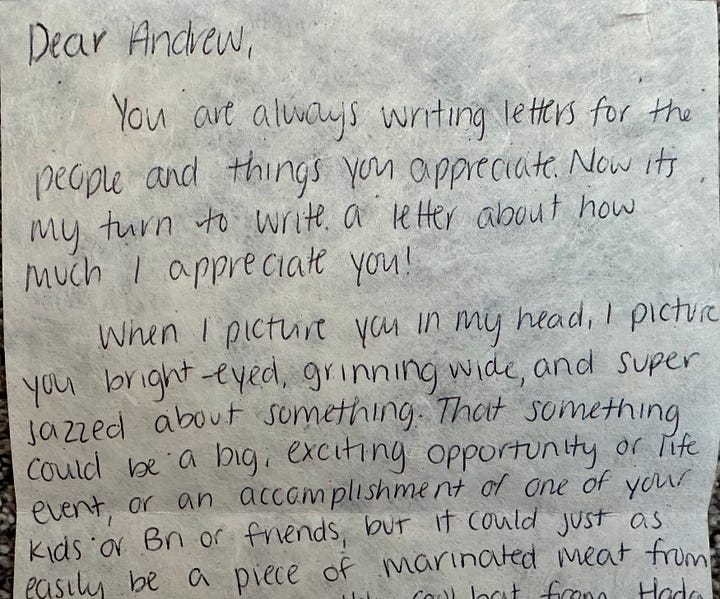 Dear Andrew,
You are always writing letters for the
people and things you appreciate. Now its
my turn to write a letter about how
much I appreciate you!
When I picture you in my head, I picture
you bright-eyed, grinning wide, and super
jazzed about something. That something
could be a big, exciting opportunity or life
event, or an accomplishment of one of your
kids or Bn or friends, but it could just as
easily be a piece of marinated meat from